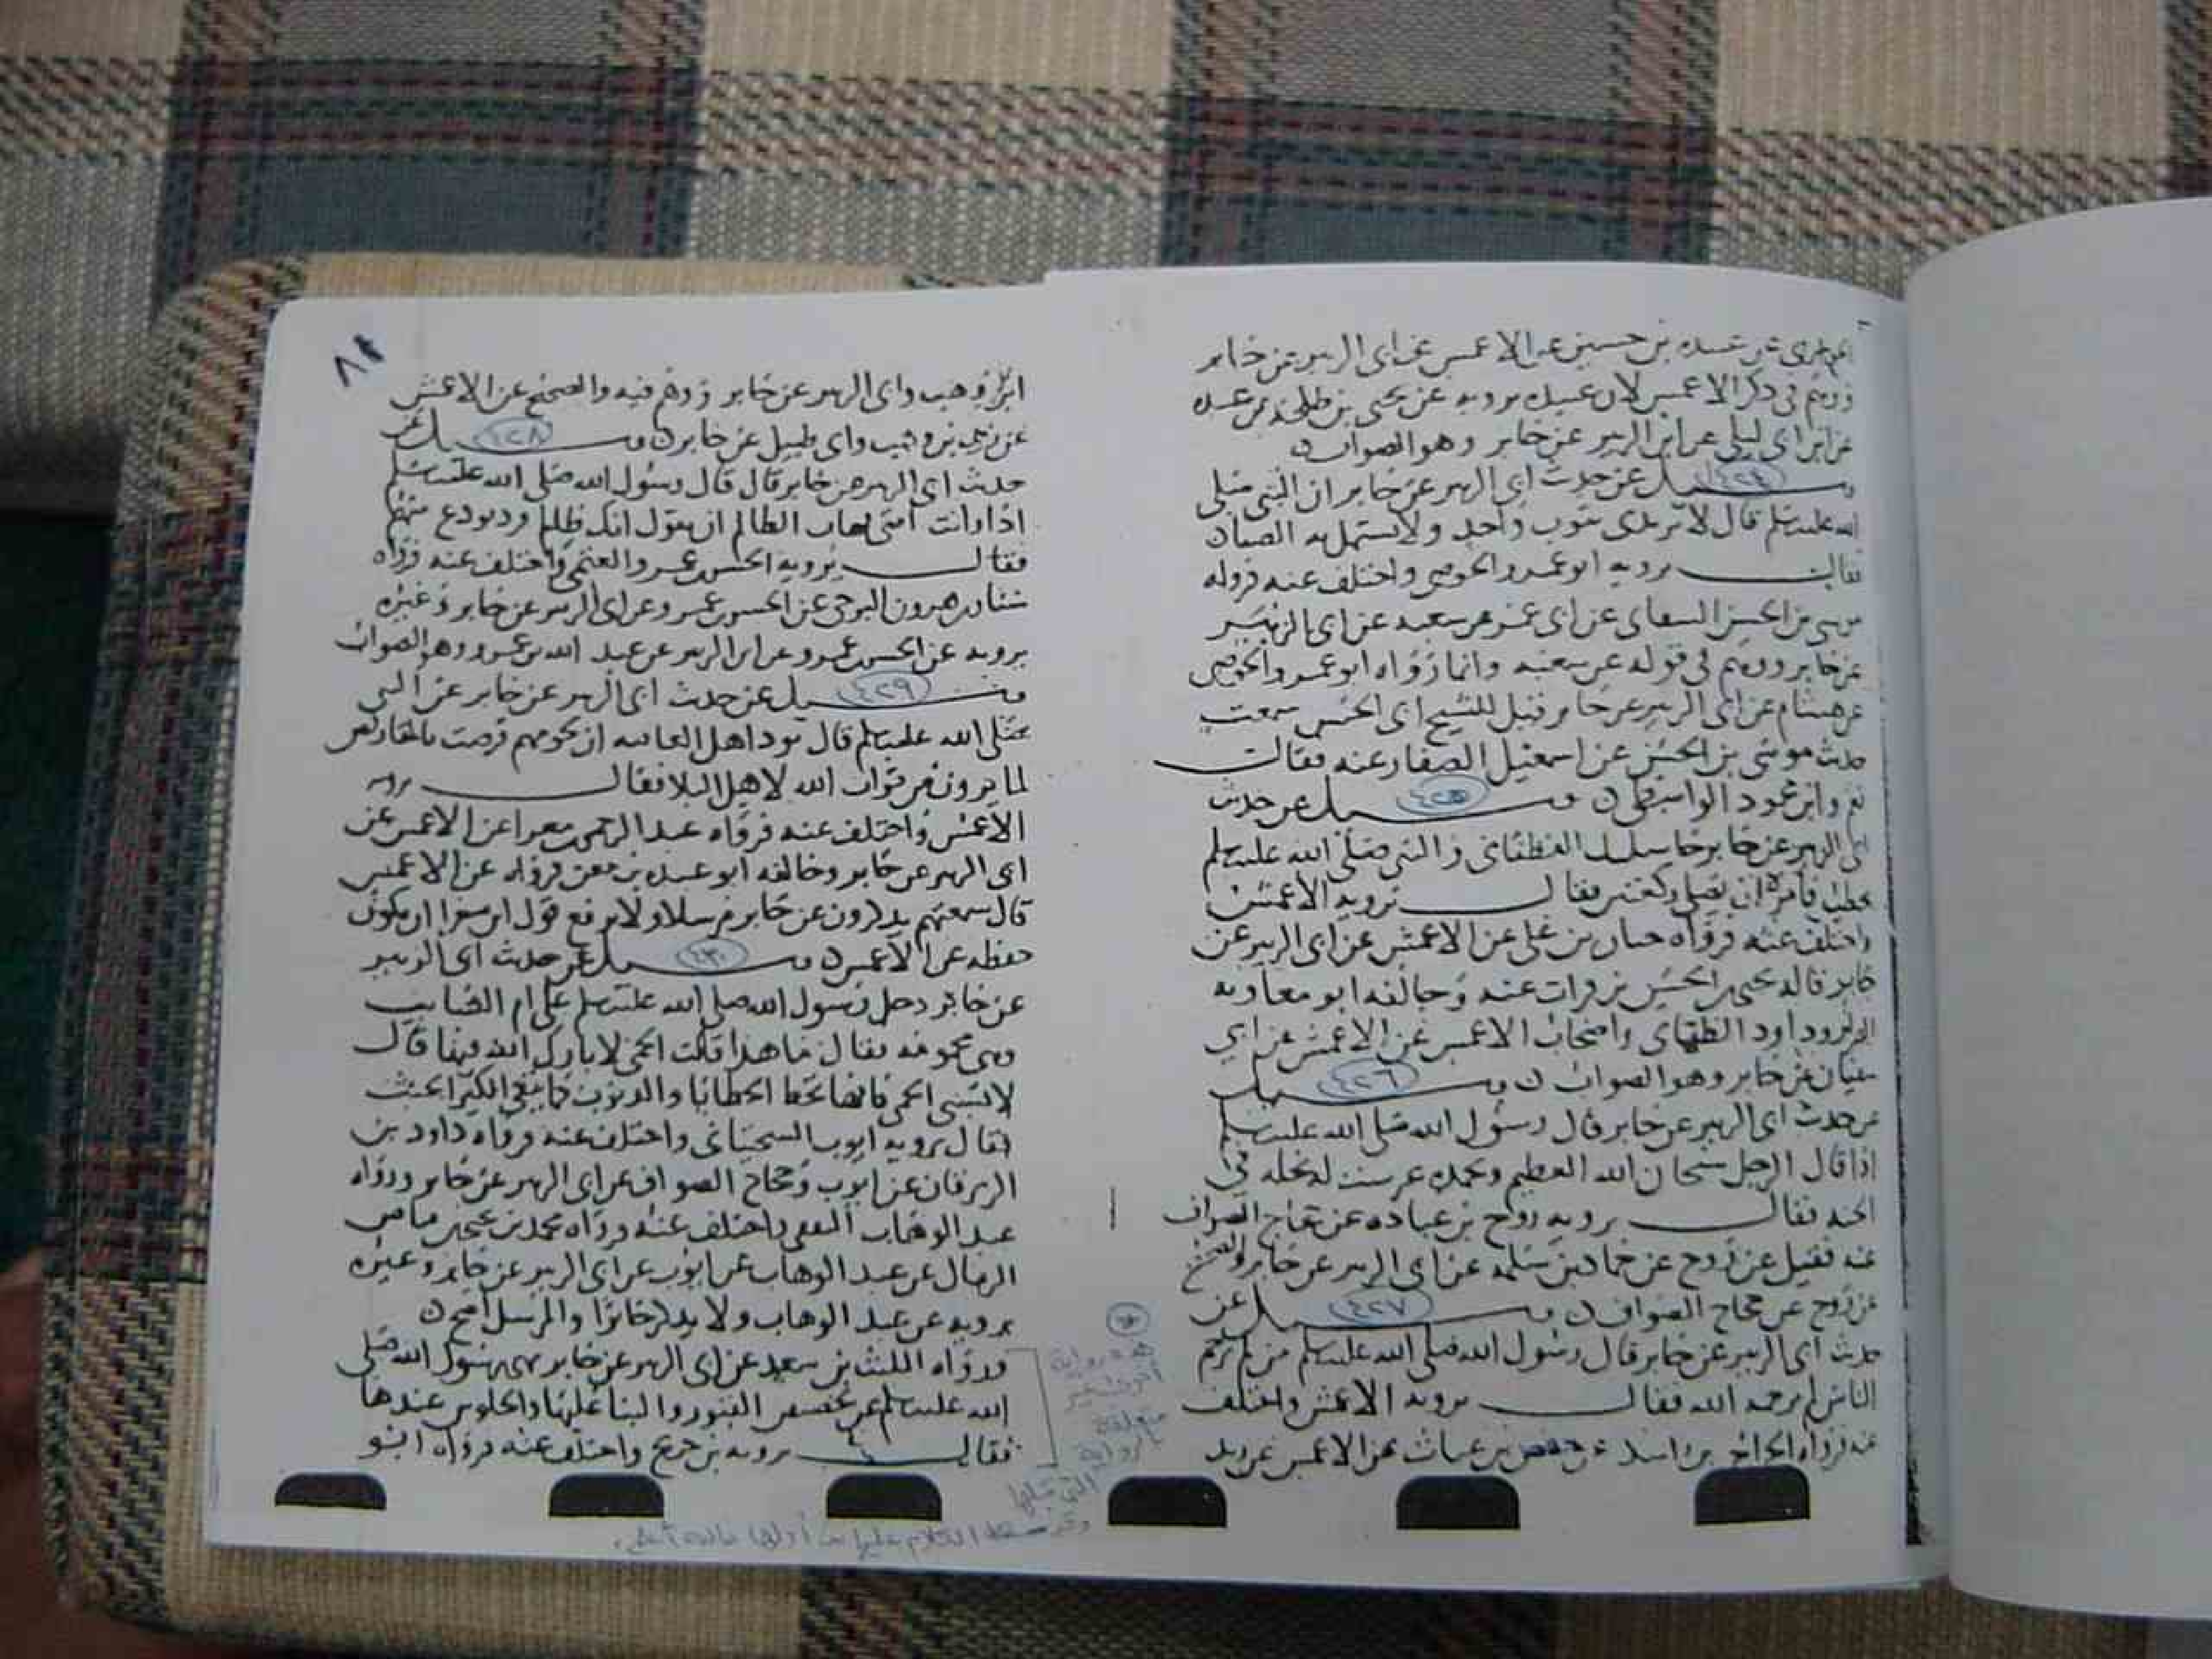 عن الاعمش عن ابى الزبير عن جابر
ووهم فى ذكر الاعمش لان عبيدة يرويه عن يحيى بن طلحة بن
عن ابن ابى ليلى عن ابى الزبير عن جابر وهو الصواب
٤٢٤ وسئل عن حديث ابى الزبير عن جابر ان النبى صلى
الله عليه وسلم قال لا ترتدى بثوب واحد ولا تشتمل به الصماء
فقال يرويه ابو عمر الحوضى واختلف عنه فرواه
موسى بن الحسن السقلى عن ابى عمر عن شعبه عن ابى الزبير
عن جابر ووهم فى قوله عن شعبه وانما رواه ابو عمر الحوضى
عن هشام عن ابى الزبير عن جابر فقيل للشيخ ابى الحسن سمعت
حديث موسى بن الحسن عن اسمعيل الصفار عنه فقال
نعم وابن الواسطى ٤٢٥ وسئل عن حديث
ابى الزبير عن جابر جا سليك الغطفانى والنبى صلى الله عليه وسلم
يخطب فامره ان يصلى ركعتين فقال يرويه الاعمش
واختلف عنه فرواه حبان بن على عن الاعمش عن ابى الزبير عن
جابر قاله يحيى بن الحسن بن فرات عنه وخالفه ابو معاويه
وداود الطائى واصحاب الاعمش عن الاعمش عن ابى
سفيان عن جابر وهو الصواب ٤٢٦ وسئل
عن حديث ابى الزبير عن جابر قال رسول الله صلى الله عليه وسلم
اذا قال الرجل سبحان الله العظيم وبحمده غرست له نخله فى
الجنه فقال يرويه روح بن عباده عن حجاج الصواف
عنه فقيل عن روح عن حماد بن سلمه عن ابى الزبير عن جابر والصحيح
عن روح عن حجاج الصواف ٤٢٧ وسئل عن
حديث ابى الزبير عن جابر قال رسول الله صلى الله عليه وسلم من لم يرحم
الناس لم يرحمه الله فقال يرويه الاعمش واختلف
عنه فرواه بن راشد عن حفص بن غياث عن الاعمش عن زيد
٨٢
ابن وهب وابى الزبير عن جابر ووهم فيه والصحيح عن الاعمش
عن زيد بن وهب وابى ظبيان عن جابر ٤٢٨ وسئل عن
حديث ابى الزبير عن جابر قال قال رسول الله صلى الله عليه وسلم
اذا رايت امتى تهاب الظالم ان يقول انك ظالم فقد تودع منهم
فقال يرويه الحسن بن عمرو الفقيمى واختلف عنه فرواه
سنان بن هرون البرجمى عن الحسن بن عمرو عن ابى الزبير عن جابر وغيره
يرويه عن الحسن بن عمرو عن ابى الزبير عن عبد الله بن عمرو وهو الصواب
٤٢٩ وسئل عن حديث ابى الزبير عن جابر عن النبى
صلى الله عليه وسلم قال يود اهل العافيه ان لحومهم قرضت بالمقاريض
لما يرون من ثواب الله لاهل البلا فقال يرويه
الاعمش واختلف عنه فرواه عبد الرحمن بن مغرا عن الاعمش عن
ابى الزبير عن جابر وخالفه ابو عبيده بن معن فرواه عن الاعمش
قال سمعتهم يذكرون عن جابر مرسلا ولا يرفع قول ابن مغرا ان يكون
حفظه عن الاعمش ٤٣٠ وسئل عن حديث ابى الزبير
عن جابر دخل رسول الله صلى الله عليه وسلم على ام السايب
وهى محمومه فقال ما هذا قالت الحمى لا بارك الله فيها قال
لا تسبى الحمى فانها تحط الخطايا والذنوب كما ينقى الكير الخبث
فقال يرويه ايوب السختيانى واختلف عنه فرواه داود بن
الزبرقان عن ايوب وحجاج الصواف عن ابى الزبير عن جابر ورواه
عبد الوهاب الثقفى واختلف عنه ورواه محمد بن يحيى بن فياض
الزمانى عن عبد الوهاب عن ايوب عن ابى الزبير عن جابر وغيره
يرويه عن عبد الوهاب ولا يذكر جابرا والمرسل اصح
ورواه الليث بن سعد عن ابى الزبير عن جابر نهى رسول الله صلى
الله عليه وسلم عن تجصيص القبور والبنا عليها والجلوس عندها
فقال يرويه بن جريج واختلف عنه فرواه ابو
هذه رواية
أخرى غير
متعلقة
بالرواية
التى قبلها
وقد سقط الكلام عليها من أولها فالله أعلم